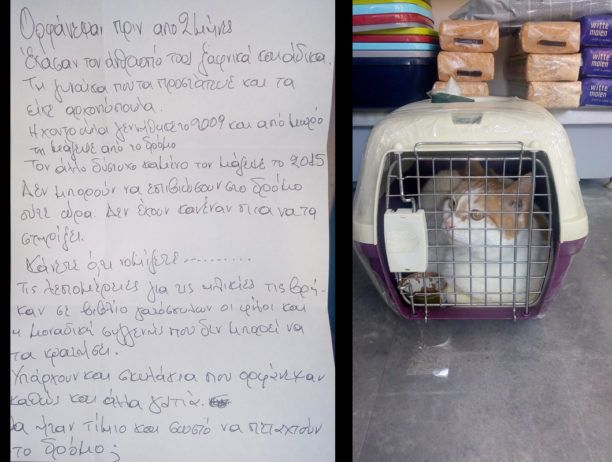 Ορφάνεψαν πριν απο 2 μήνες
Έχασαν τον άνθρωπό τους ξαφνικά και άδικα.
Τη γυναίκα που τα προστάτευε και τα
είχε αρχοντόπουλα.
Η χοντρούλα γεννήθηκε το 2009 και από μωρό
τη μάζεψε από το δρόμο
Τον άλλο δύστυχο καμένο τον μάζεψε το 2015
Δεν μπορούν να επιβιώσουν στο δρόμο
ούτε ώρα. Δεν έχουν κανέναν πια να τα
στηρίξει.
Κάνετε ό,τι νομίζετε.........
Τις λεπτομέρειες για τις ηλικίες τις βρή-
καν σε βιβλίο οι φίλοι και
η μοναδική συγγενής που δεν μπορεί να
τα κρατήσει.
Υπάρχουν και σκυλάκια που ορφάνεψαν
καθώς και άλλα γατιά.
Θα ήταν τίμιο και σωστό να πεταχτούν
το δρόμο;
witte
molen
witte
molen